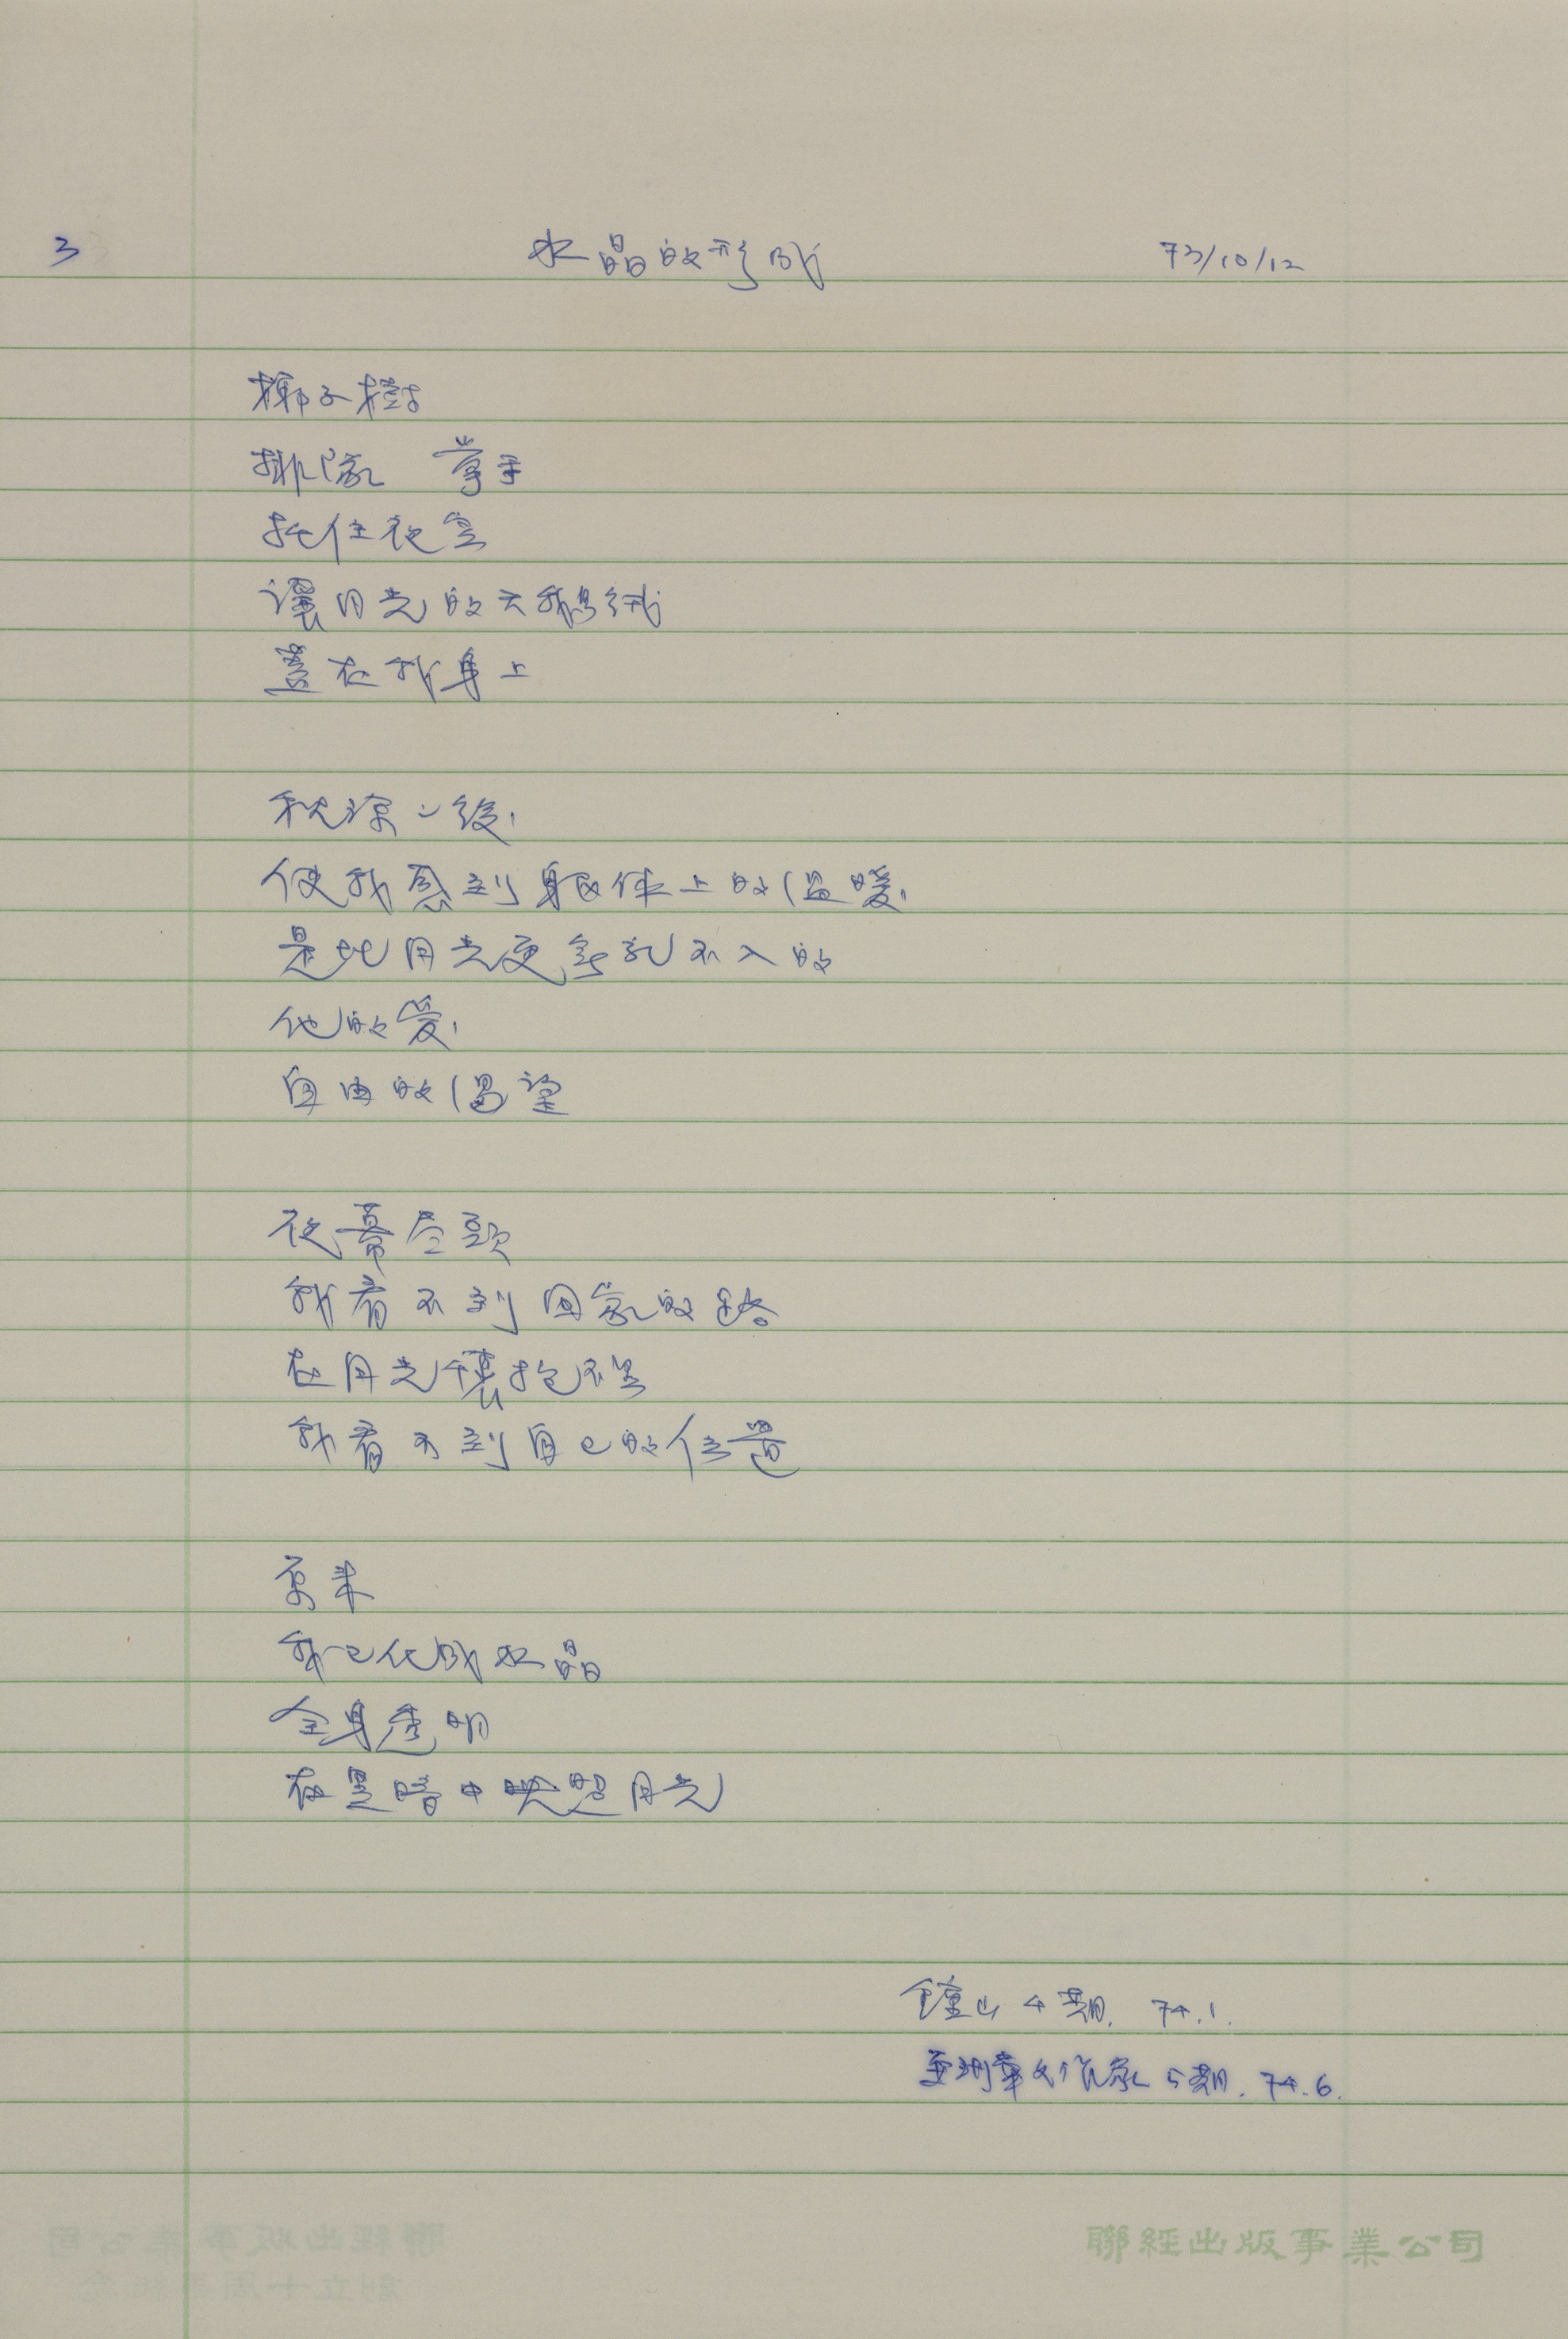 3 水晶的形成 73/10/12
椰子樹
排隊 掌手
托住夜空
讓月光的天鵝絨
蓋在我身上
秋深以後,
使我感到軀体上的溫暖,
是比月光更無孔不入的
他的愛,
自由的渴望
夜幕尽頭
我看不到回家的路
在月光懷抱裡
我看不到自己的位置
原來
我已化成水晶
全身透明
在黑暗中映照月光
鐘山 4期. 74.1.
亞洲華文作家 5期. 74.6.
聯經出版事業公司